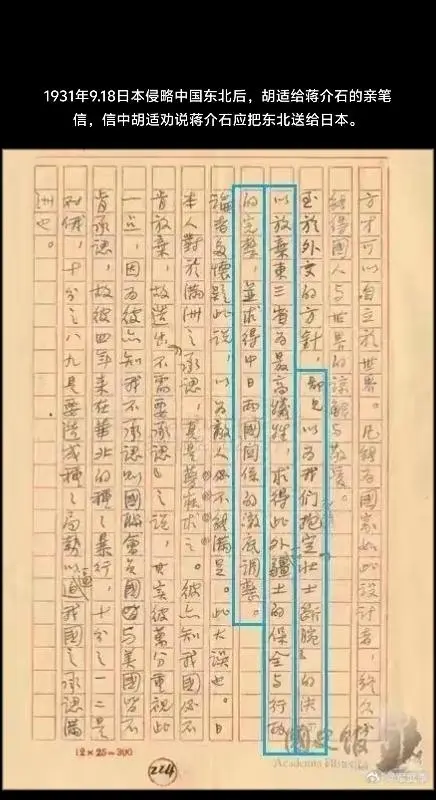 1931年9.18日本侵略中国东北后，胡适给蒋介石的亲笔
信，信中胡适劝说蒋介石应把东北送给日本。
方才可以自立於世界。凡能為國家如此設計者，終久必
能得國人与世界的諒解与敬愛。
至於外交的方針，鄙見以為我們抱定壯士斷腕的決
以放棄東三省為最高犧牲，求得此外疆土的保全与行政
的完整，並求得中日兩國關係的澈底調整。
論者多懷疑此說，以為敵人必不能滿足。此大誤也。日
本人對於滿洲之承認，真是夢寐求之。彼亦知我國必不
肯放棄，故造出“不需要承認”之說，其實彼萬分重視此
一点，因為彼亦知我不承認則國聯會員國皆与美國皆不
肯承認，故彼四年來在華北的種〻暴行，十分之一二是
對俄，十分之八九是要造成種〻局勢以逼我國之承認滿
洲也。
12×25=300
224
國史館
Academia Historica